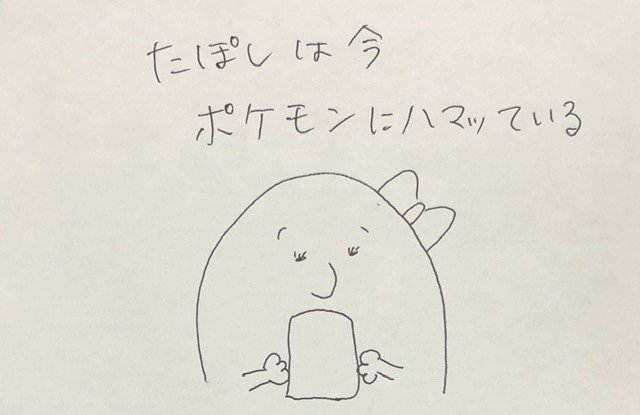 たぽしは今
ポケモンにハマッている